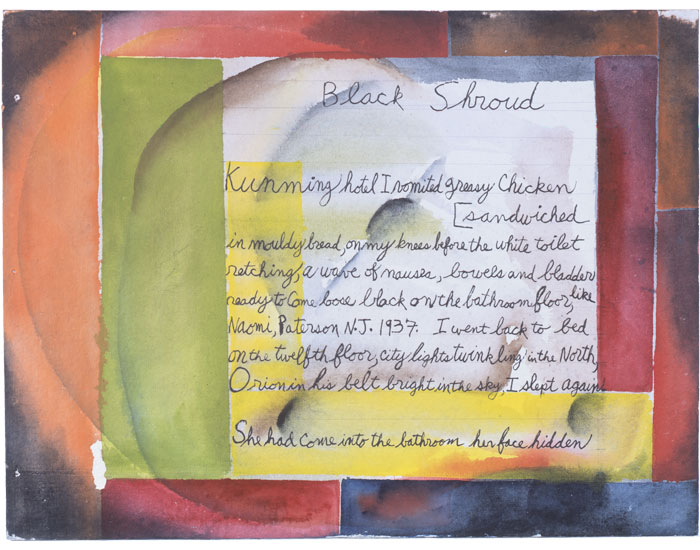 Black Shroud
Kunming hotel I vomited greasy Chicken
[sandwiched
in mouldy bread, on my knees before the white toilet
retching, a wave of nausea, bowels and bladder
ready to Come loose black on the bathroom floor, like
Naomi, Paterson N.J. 1937. I went back to bed
on the twelfth floor, city lights twinkling in the North,
Orion in his belt bright in the sky, I slept again.
She had come into the bathroom her face hidden